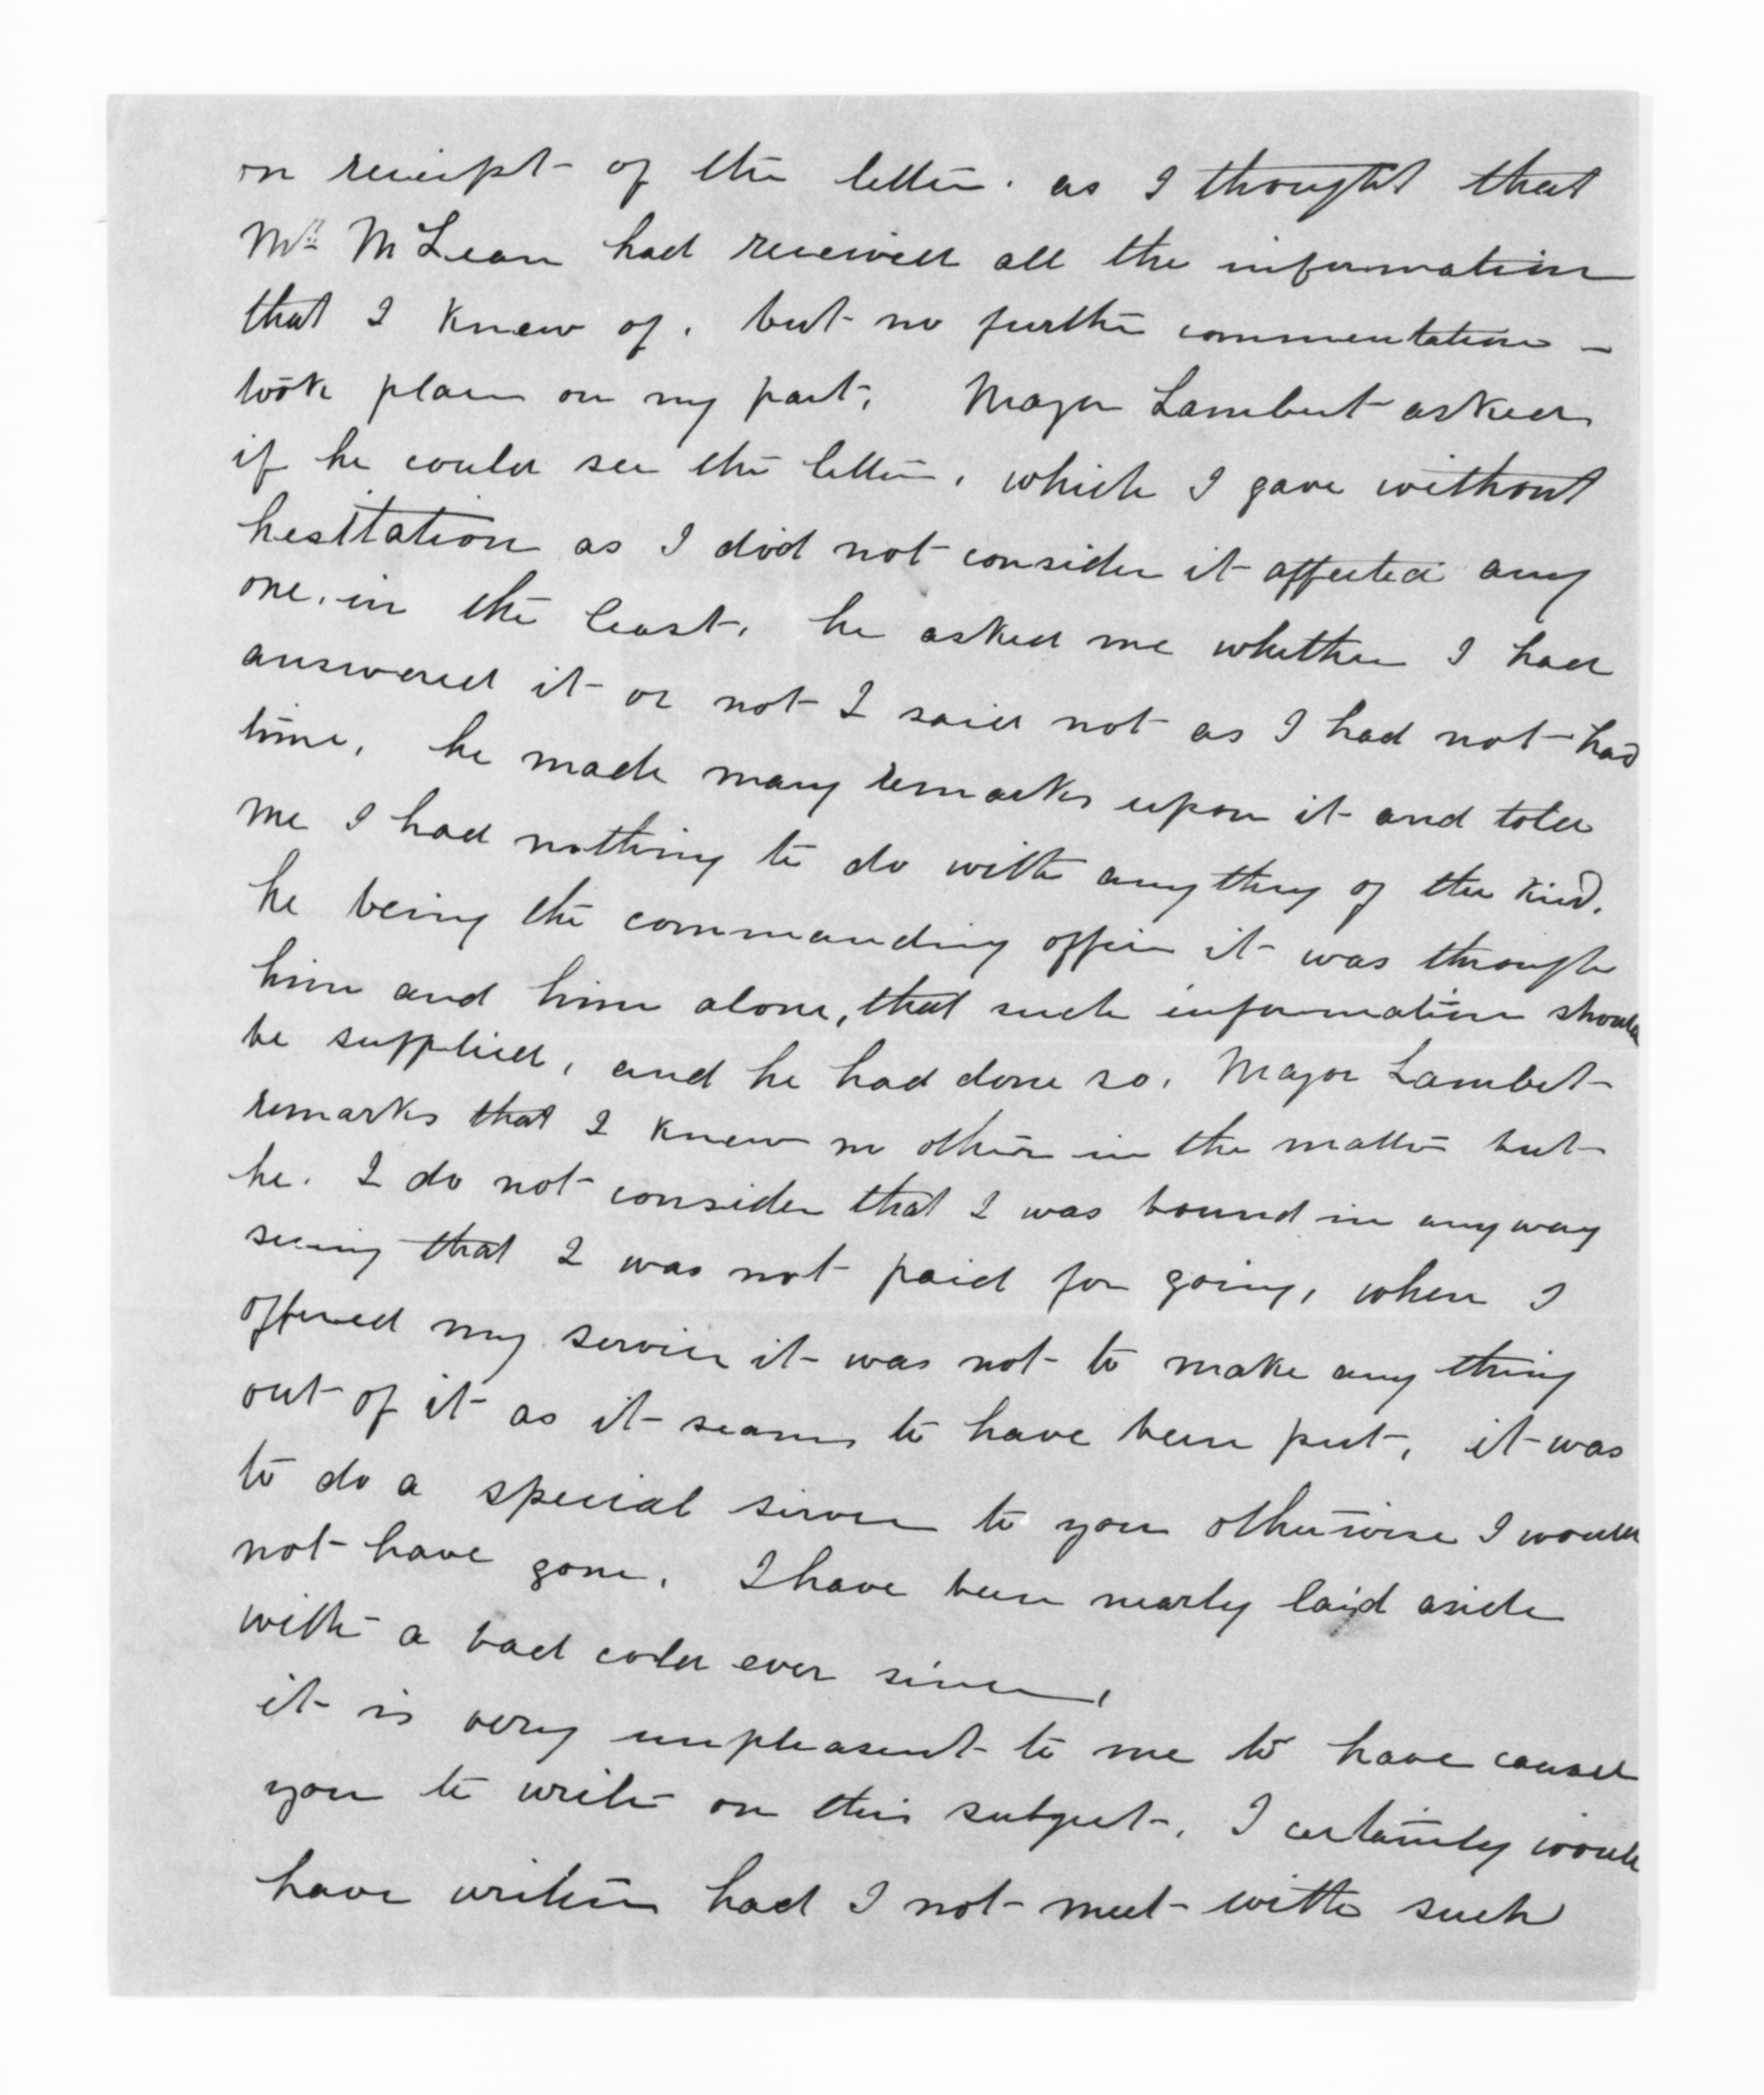 on receipt of the letter. as I thought that
Mr. McLean had received all the information
that I knew of, but no further commentation -
took place on my part, Major Lambert asked
if he could see the letter, which I gave without
hesitation as I did not consider it affected any
one, in the least, he asked me whether I had
answered it or not I said not as I had not had
time, he made many remarks upon it and told
me I had nothing to do with any thing of the kind.
he being the commanding officer it was through
him and him alone, that such information should
be supplied, and he had done so. Major Lambert
remarks that I knew no other in the matter but
he. I do not consider that I was bound in any way
seeing that I was not paid for going, when I
offered my service it was not to make any thing
out of it as it seams to have been put, it was
to do a special service to you otherwise I would
not have gone. I have been nearly laid aside
with a bad cold ever since,
it is very unpleasent to me to have caused
you to write on this subject, I certainly would
have written had I not meet with such